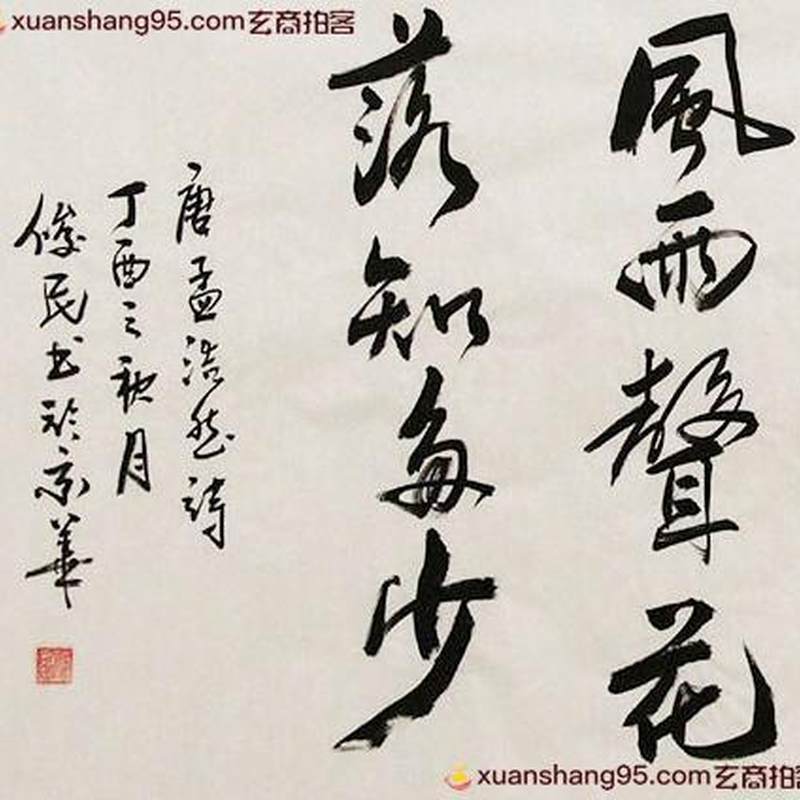 風雨聲花
落知多少
唐孟浩然詩
丁酉之秋月
俊民书於京華
xuanshang95.com玄商拍客
xuanshang95.com玄商拍客